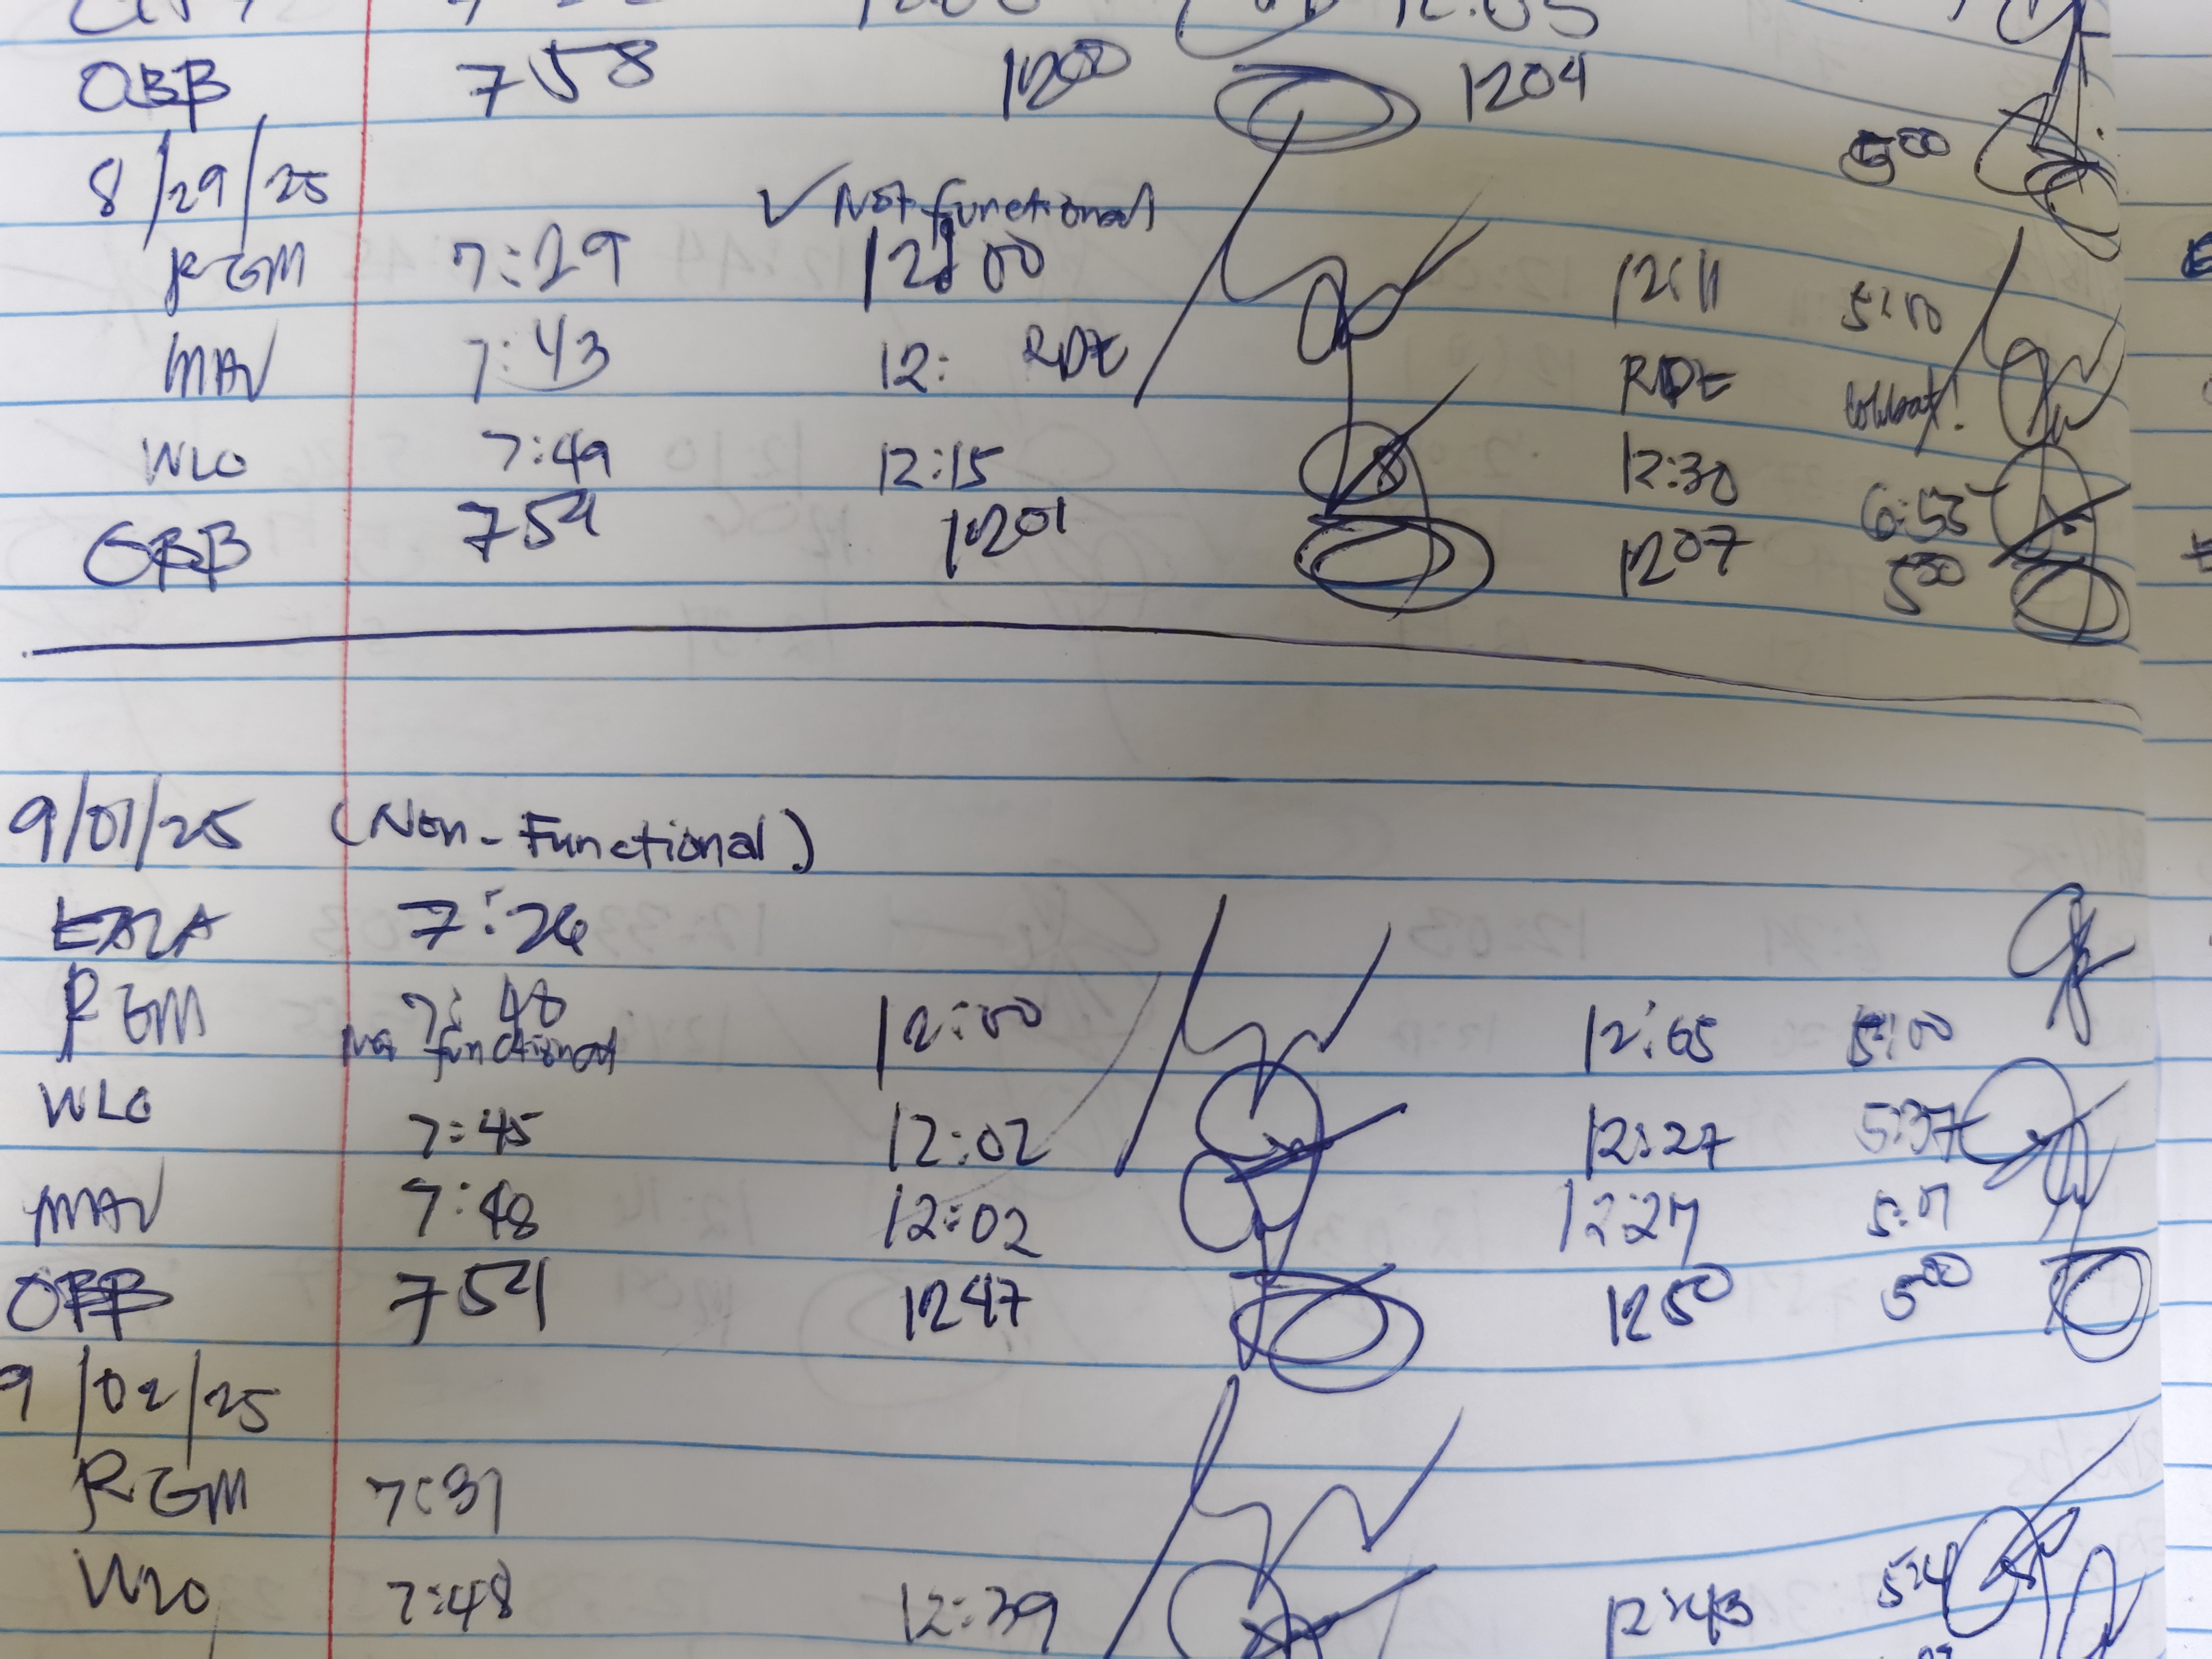 OBB 758 1200 1204 500
8/29/25 ✓ Not functional
RGM 7:29 12:00 12:11 5:10
MAV 7:43 12: RDE RDE
WLO 7:49 12:15 12:30 6:53
OBB 754 1201 1207 500
9/01/25 (Non-Functional)
7:26
RGM 7:48 12:00 12:05 5:00
Not functional
WLO 7:45 12:02 12:27 5:37
MAV 7:48 12:02 12:27 5:01
OBB 754 1247 1250 500
9/02/25
RGM 7:31
WLO 7:48 12:39 12:43